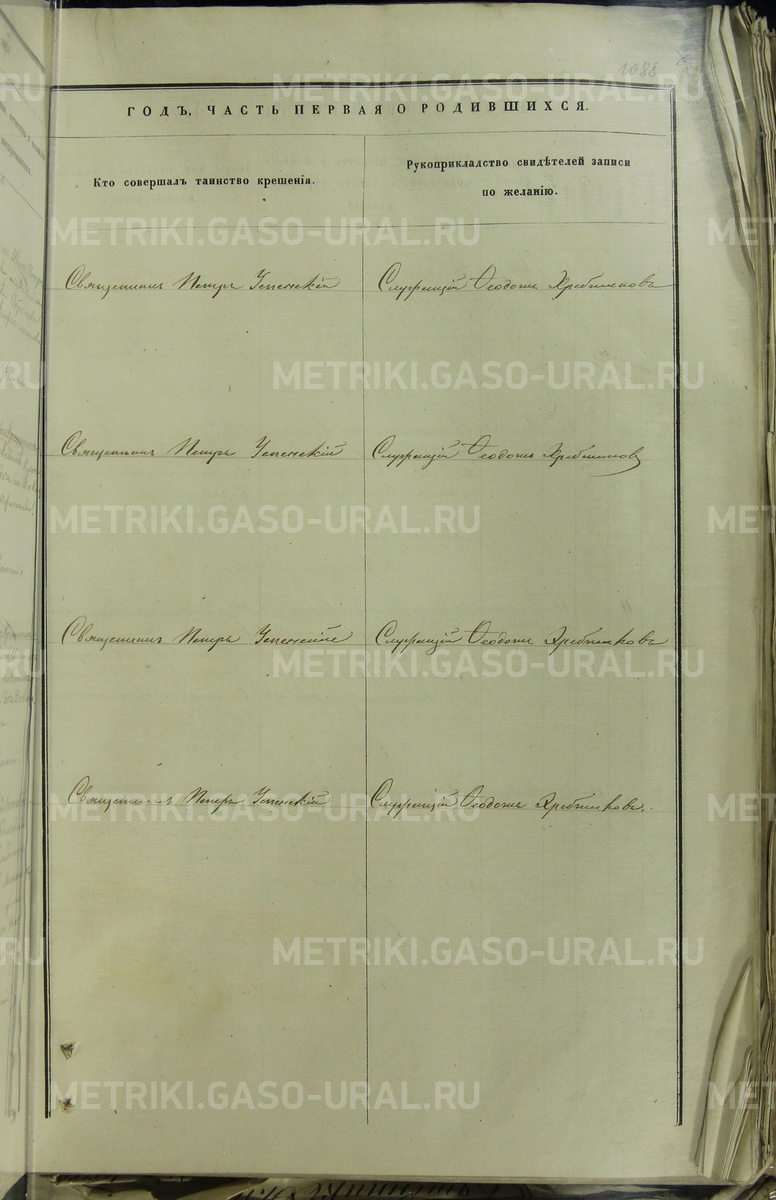 1088
ГОДЪ, ЧАСТЬ ПЕРВАЯ О РОДИВШИХСЯ.
Кто совершалъ таинство крещенія.
Рукоприкладство свидѣтелей записи
по желанію.
Священникъ Петръ Успенскій
Служащій Ѳеодотъ
Священникъ Петръ Успенскій
Служащій Ѳеодотъ
Священникъ Петръ Успенскій
Служащій Ѳеодотъ
Священникъ Петръ Успенскій
Служащій Ѳеодотъ
METRIKI.GASO-URAL.RU